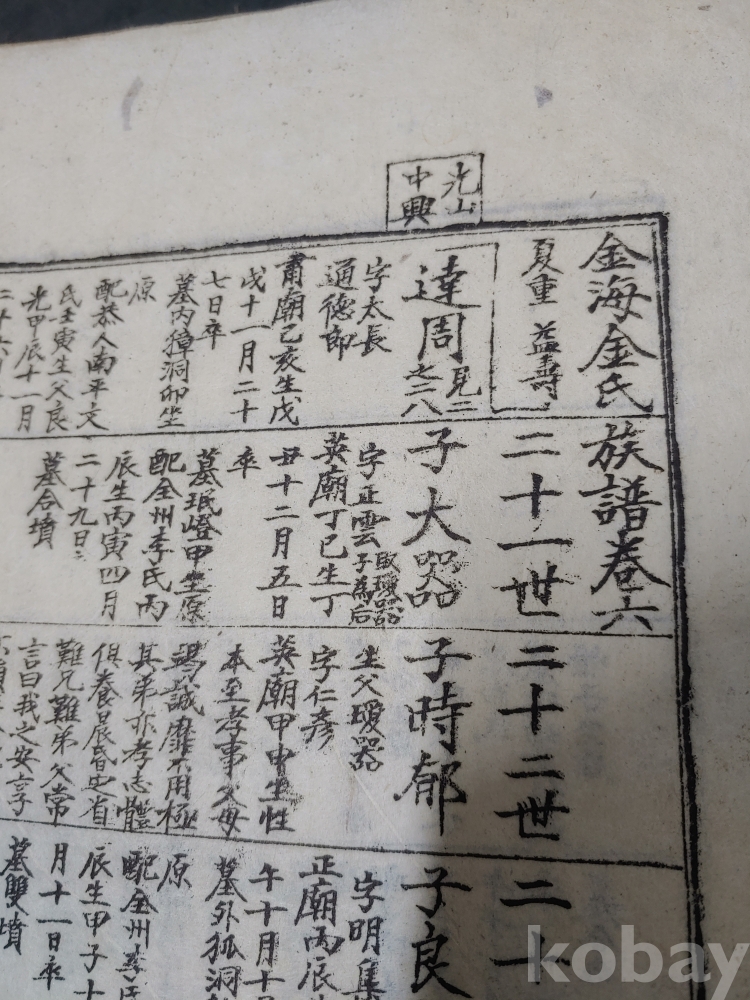 光山
中興
金海金氏族譜卷六
夏重 益壽
二十一世
二十二世
二十
達周
見二
之三八
字太長
通德郎
肅廟己亥生戊
戌十一月二十
七日卒
墓內獐洞卯坐
原
配恭人南平文
氏壬寅生父良
光甲辰十一月
二十六
子大器
字正雲
取瓊器
子為后
英廟丁巳生丁
丑十二月五日
卒
墓珉嶝甲坐原
配全州李氏丙
辰生丙寅四月
二十九日
墓合墳
子時郁
生父瓊器
字仁彦
英廟甲申生性
本至孝事父母
竭誠靡不用極
其弟亦孝志體
俱養晨昏定省
難兄難弟父常
言曰我之安享
子良
字明
正廟丙辰生
午十月十
墓外狐洞
原
配全州李氏
辰生甲子十
月十一日卒
墓雙墳
kobay